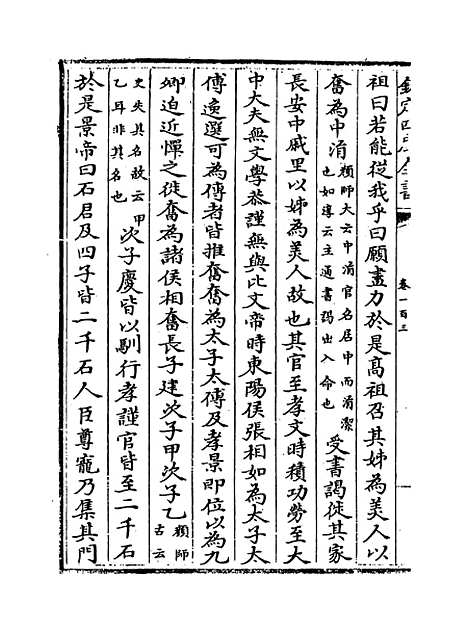 欽定四庫全書 卷一百三
祖曰若能從我乎曰願盡力於是髙祖召其姊為美人以
奮為中涓
顔師古云中涓官名居中而涓潔
也如淳云主通書謁出入命也
受書謁徙其家
長安中戚里以姊為美人故也其官至孝文時積功勞至大
中大夫無文學恭謹無與比文帝時東陽侯張相如為太子太
傅免選可為傅者皆推奮奮為太子太傅及孝景即位以為九
卿迫近憚之徙奮為諸侯相奮長子建次子甲次子乙
顔師
古云
史失其名故云甲
乙耳非其名也
次子慶皆以馴行孝謹官皆至二千石
於是景帝曰石君及四子皆二千石人臣尊寵乃集其門